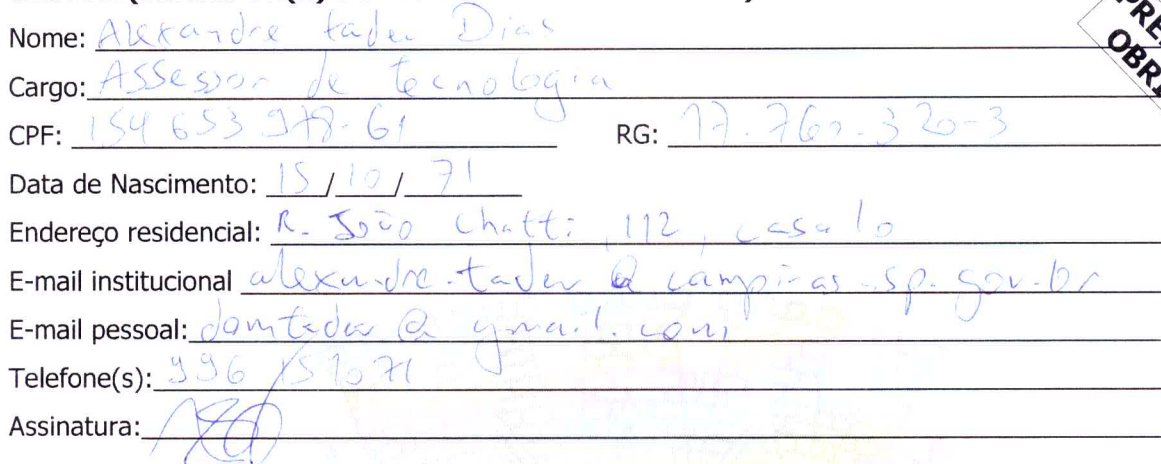 Nome: Alexandre tadeu Dias
Cargo: ASSessor de tecnologia
CPF: 154 653 978-61 RG: 17.760.320-3
Data de Nascimento: 15/10/71
Endereço residencial: R. João Chatti, 112, casa 10
E-mail institucional alexandre.tadeu@campinas.sp.gov.br
E-mail pessoal: damtadeu@gmail.com
Telefone(s): 996 151071
Assinatura: